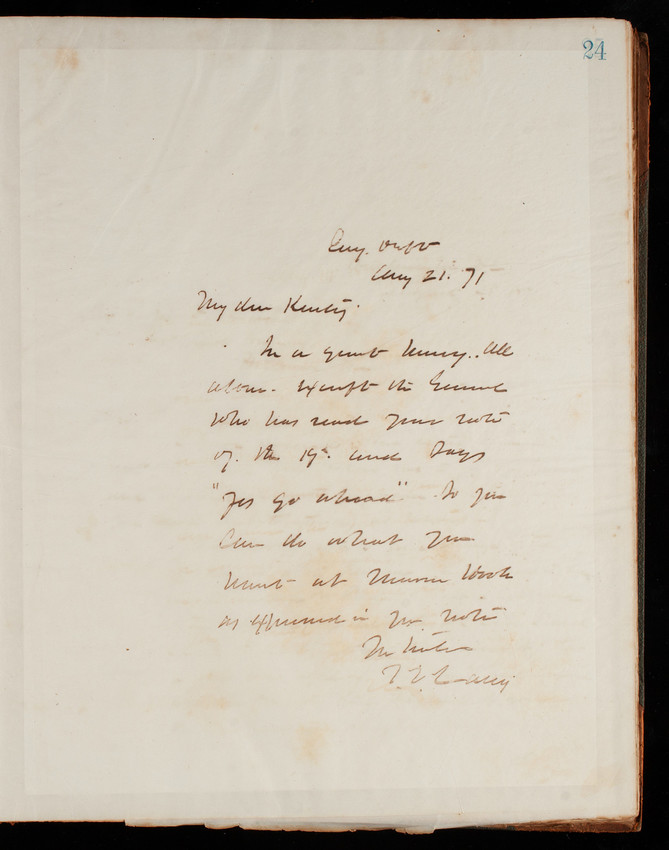 24
Eng. Dept
Aug 21. 71
My dear Kurtz.
In a great hurry. All
alone. Except the General
who has read your note
of the 19th and says
"Yes go ahead" So you
can do what you
want at Minor work
as expressed in yr. note
T. L. Casey